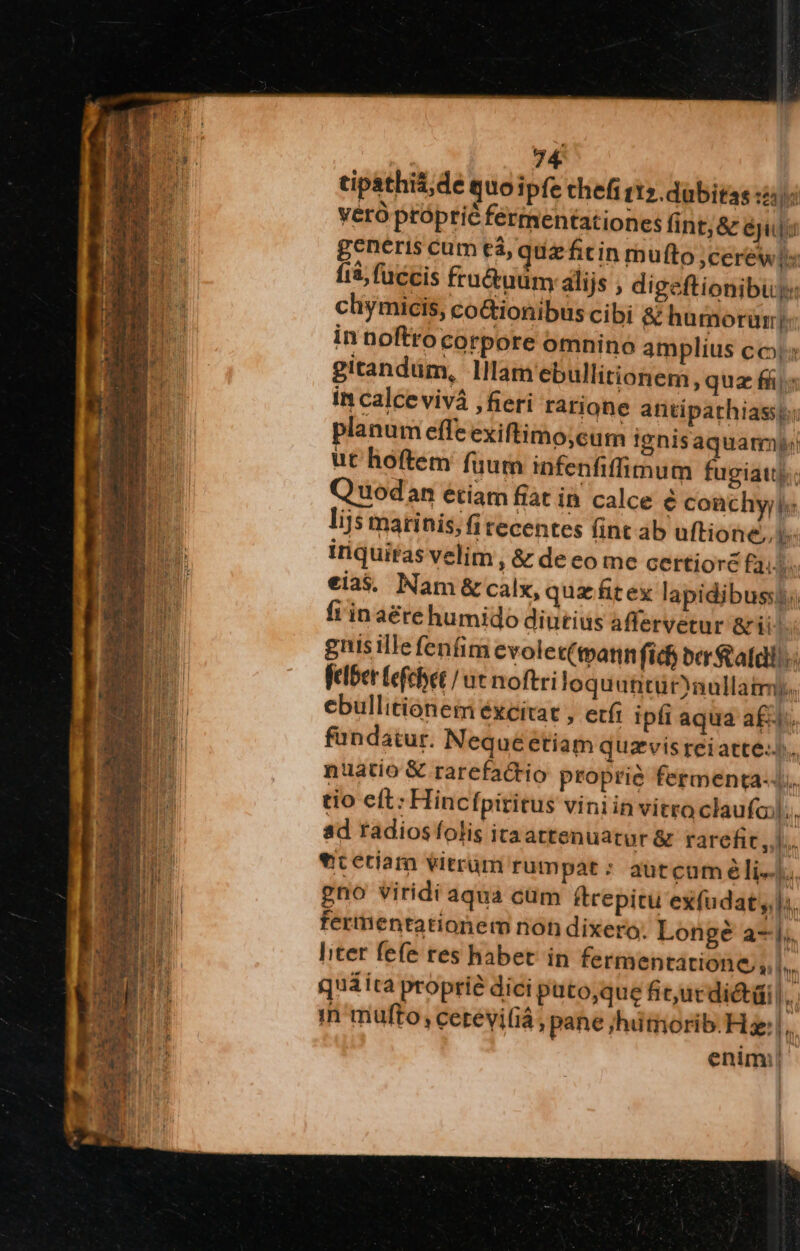 74
tipathiâ, de quo ipſe theſi 112. dubitas:
verò propriè fermentationes ſint, &
generis cum eâ, quæ fit in muſto, cerew
ſiâ, ſuccis fructuum alijs, digeſtionibu
chymicis, coctionibus cibi & humorum
in noſtro corpore omnino amplius co
gitandum, Illam ebullitionem, quæ fi
in calce vivâ, fieri ratione antipathias
planum eſſe exiſtimo, cum ignis aquam
ut hoſtem ſuum infenſiſſimum fugiat
Quod an etiam fiat in calce è conchy
lijs marinis, ſi recentes ſint ab uſtione,
inquiras velim, & de eo me certiorē fa
cias. Nam & calx, quæ fit ex lapidibus
ſi in aëre humido diutius aſſervetur & i
gnis ille ſenſim evolet (wann ſich der Kalch
ſelber leſchet / ut noſtri loquuntur) nullam
ebullitionem excitat, etſi ipſi aqua af
fundatur. Neque etiam quævis rei atte-
nuatio & rarefactio propriè fermenta-
tio eſt: Hinc ſpiritus vini in vitro clauſo
ad radios ſolis ita attenuatur & rarefit,
ut etiam vitrum rumpat: aut cum è li-
gno viridi aqua cum ſtrepitu exſudat,
fermentationem non dixero. Longè a-
liter ſeſe res habet in fermentatione,
quà ita propriè dici puto, que fit, ut dictū
in muſto, cereviſiâ, pane, humorib. Hæ
enim